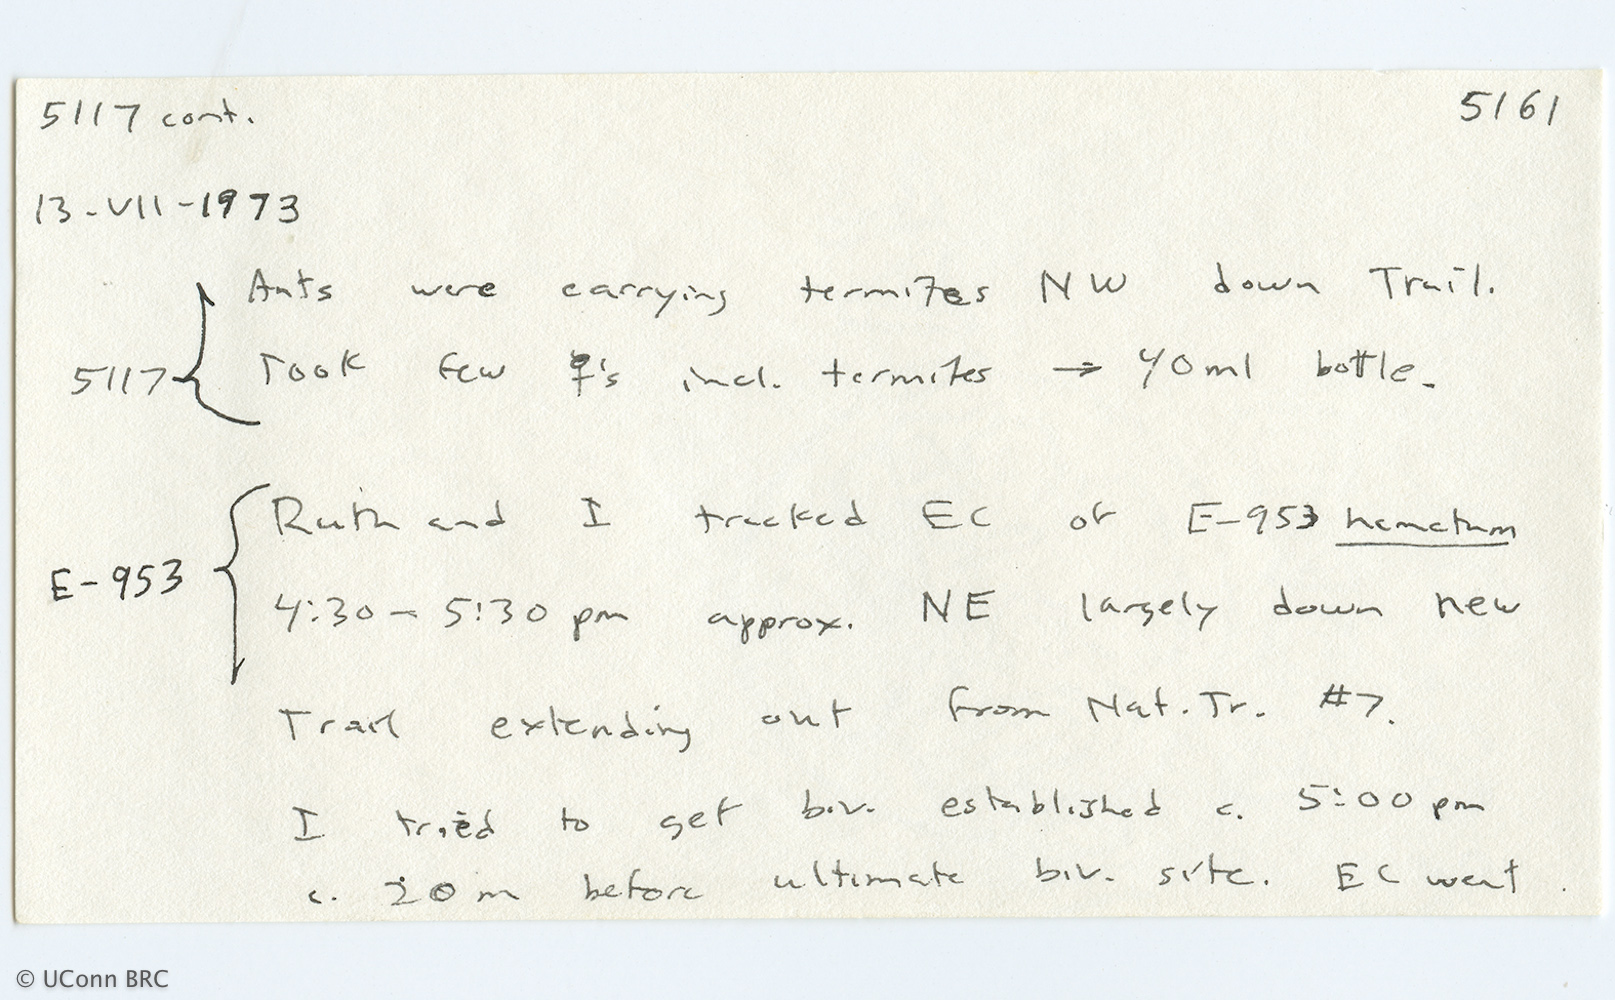 5117 cont.
5161
13-VII-1973
Ants were carrying termites NW down Trail.
5117
Took few ☿'s incl. termites → 40ml bottle.
Ruth and I tracked EC of E-953 hamatum
E-953
4:30 - 5:30 pm approx. NE largely down new
Trail extending out from Nat. Tr. #7.
I tried to get biv. established c. 5:00 pm
c. 20 m before ultimate biv. site. EC went
© UConn BRC